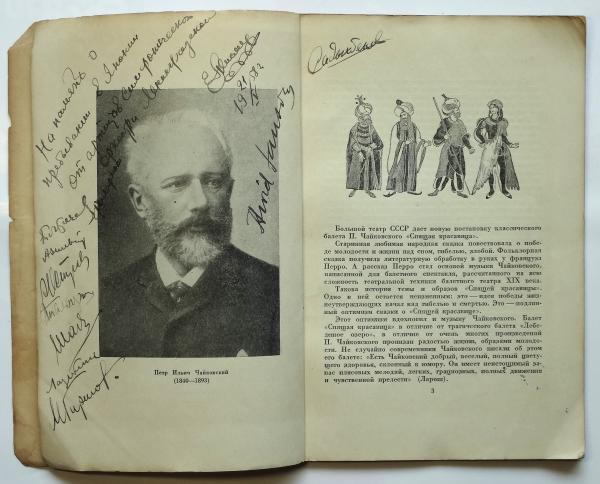 На память о
пребывании в Японии
от артистов симфонического
оркестра Ленинградской
21
1958
Arvid Jansons
Петр Ильич Чайковский
(1840—1893)
Большой театр СССР дает новую постановку классического
балета П. Чайковского «Спящая красавица».
Старинная любимая народная сказка повествовала о побе-
де молодости и жизни над сном, гибелью, злобой. Фольклорная
сказка получила литературную обработку в руках у француза
Перро. А рассказ Перро стал основой музыки Чайковского,
написанной для балетного спектакля, рассчитанного на всю
сложность театральной техники балетного театра XIX века.
Такова история темы и образов «Спящей красавицы».
Одно в ней остается неизменным: это — идея победы жиз-
неутверждающих начал над гибелью и смертью. Это — подлин-
ный оптимизм сказки о «Спящей красавице».
Этот оптимизм вдохновил и музыку Чайковского. Балет
«Спящая красавица» в отличие от трагического балета «Лебе-
диное озеро», в отличие от очень многих произведений
П. Чайковского пронизан радостью жизни, образами молодо-
сти. Не случайно современники Чайковского писали об этом
его балете: «Есть Чайковский добрый, веселый, полный цвету-
щего здоровья, склонный к юмору. Он имеет неистощимый за-
пас плясовых мелодий, легких, грациозных, полных движения
и чувственной прелести» (Ларош).
3